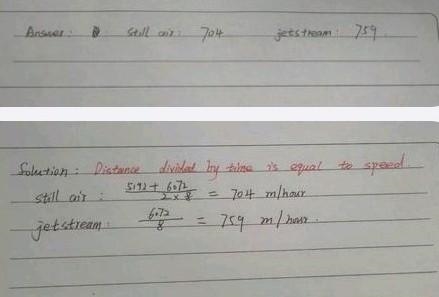 Answer: still air: 704 jetstream: 759.
Solution: Distance divided by time is equal to speed.
still air: (5192 + 6072) / (2 × 8) = 704 m/hour
jetstream: 6072 / 8 = 759 m/hour.